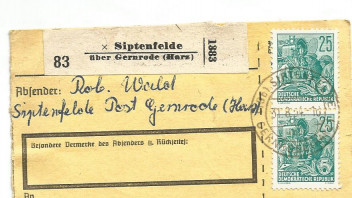 × Siptenfelde
über Gernrode (Harz)
83
1383
25
Absender: Rob. Wald
Siptenfelde Post Gernrode (Harz)
DEUTSCHE
DEMOKRATISCHE REPUBLIK
Besondere Vermerke des Absenders u. Rückzettel:
25
DEUTSCHE
DEMOKRATISCHE REPUBLIK
An